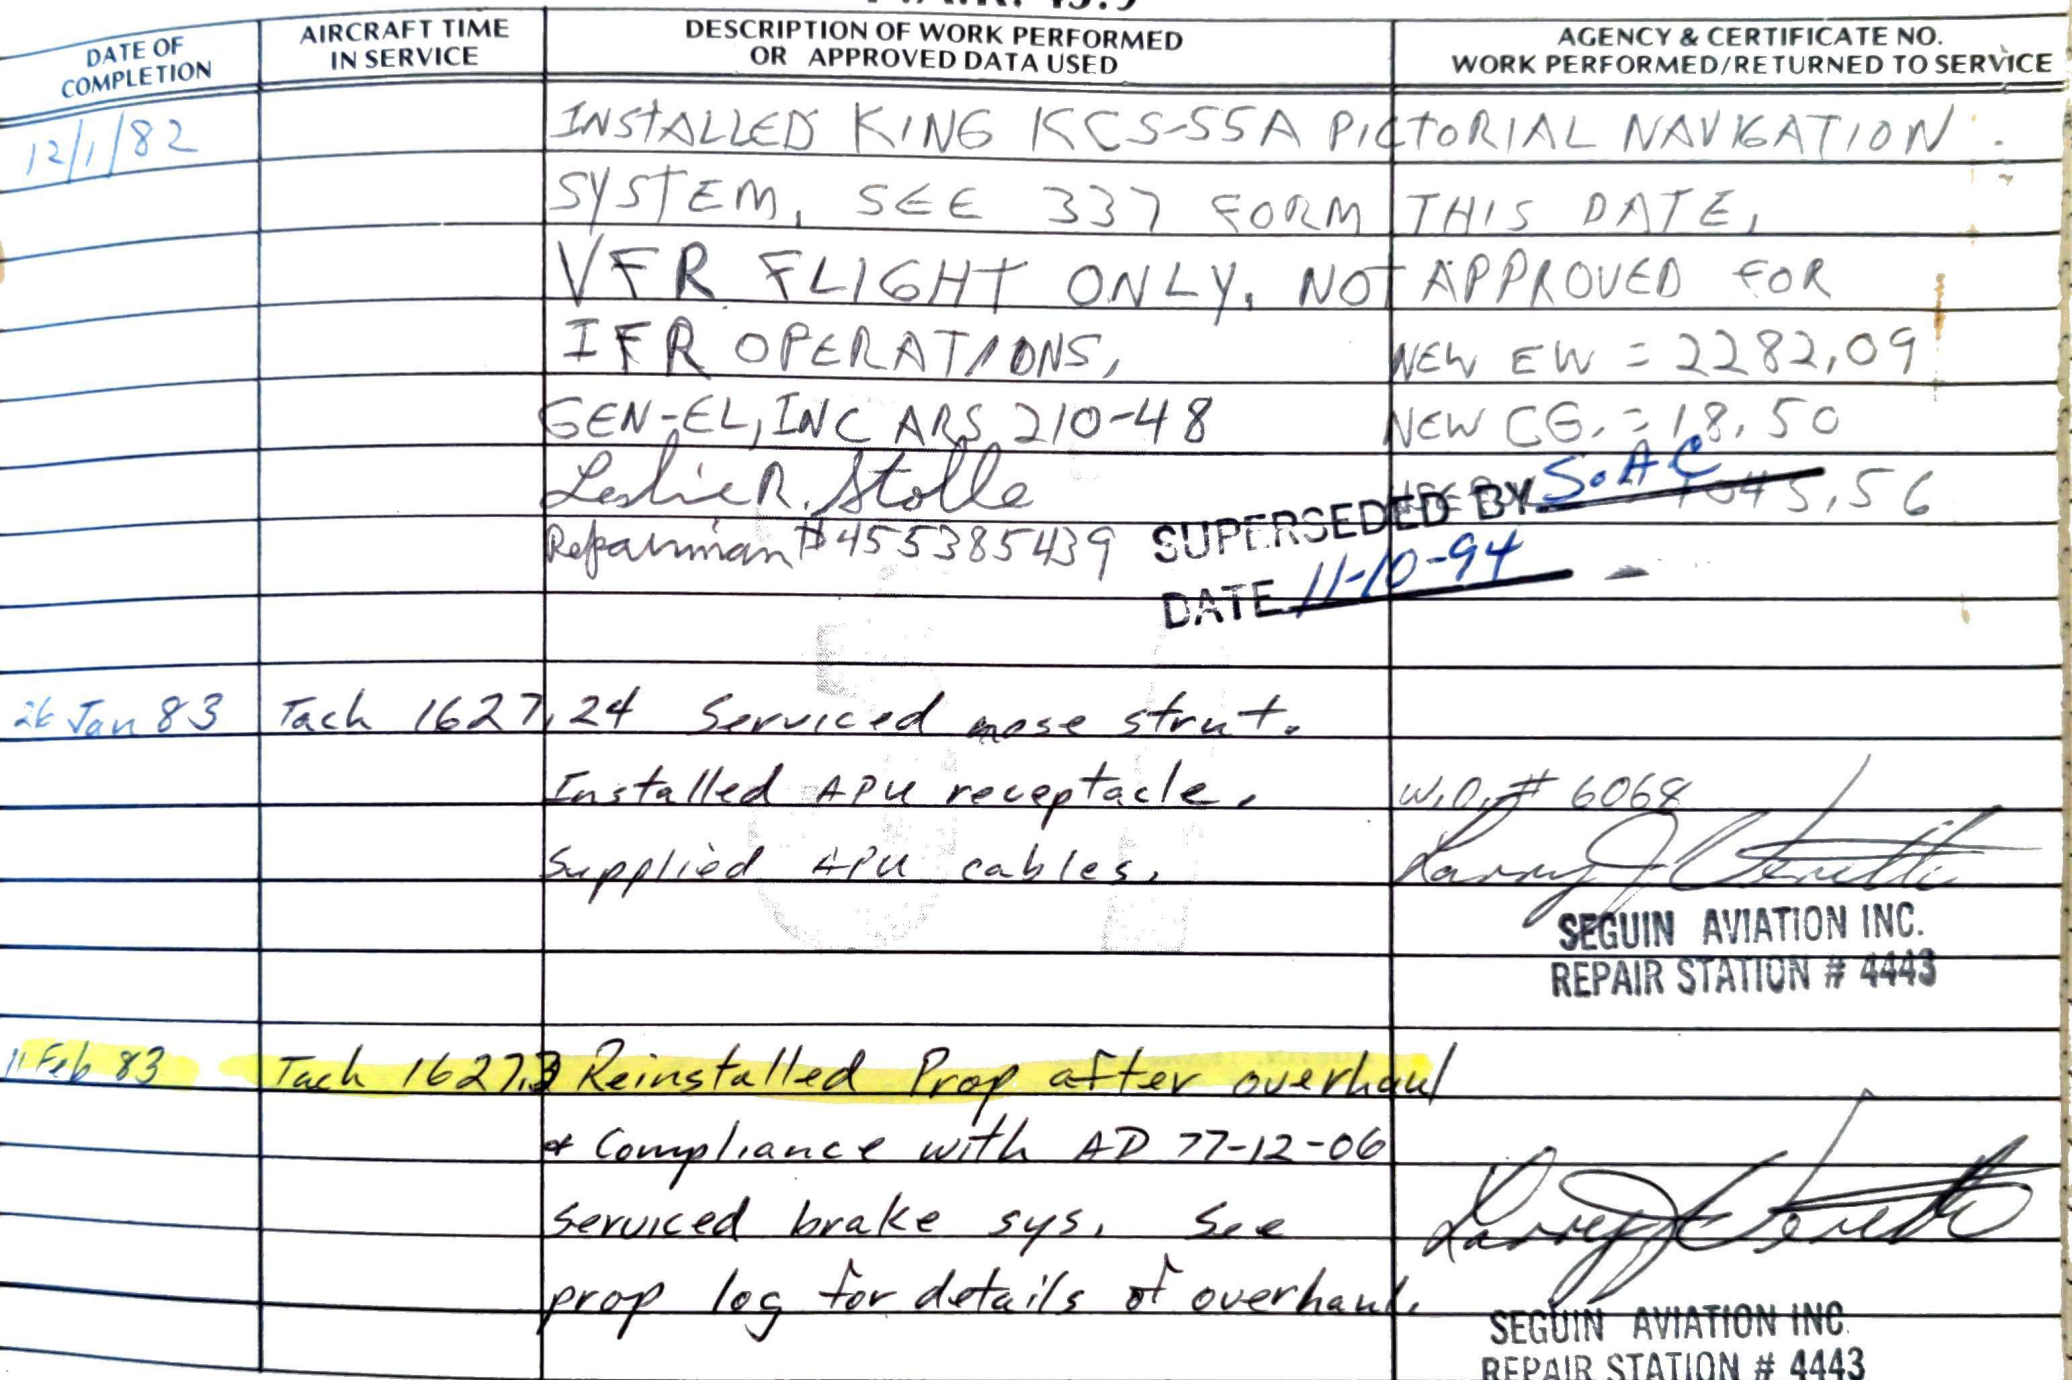 DATE OF COMPLETION
AIRCRAFT TIME IN SERVICE
DESCRIPTION OF WORK PERFORMED OR APPROVED DATA USED
AGENCY & CERTIFICATE NO. WORK PERFORMED/RETURNED TO SERVICE
12/1/82 INSTALLED KING KCS-55A PICTORIAL NAVIGATION
SYSTEM, SEE 337 FORM THIS DATE,
VFR FLIGHT ONLY, NOT APPROVED FOR
IFR OPERATIONS, NEW EW = 2282,09
GEN-EL, INC ARS 210-48 NEW CG. = 18,50
Leslie R. Stolle
Repairman #455385439
SUPERSEDED BY S.A.C
DATE 11-10-94
26 Jan 83 Tach 1627,24 Serviced nose strut.
Installed APU receptacle, W.O. # 6068
Supplied APU cables,
SEGUIN AVIATION INC.
REPAIR STATION # 4443
11 Feb 83 Tach 1627.3 Reinstalled Prop after overhaul
& Compliance with AD 77-12-06
Serviced brake sys. See
prop log for details of overhaul.
SEGUIN AVIATION INC.
REPAIR STATION # 4443